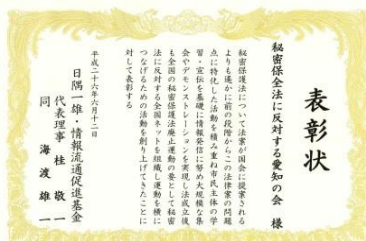 表彰状
秘密保全法に反対する愛知の会 様
秘密保護法について法案が国会に提案される
よりも遙かに前の段階からこの法律案の問題
点に特化した活動を積み重ね市民主体の学
習・宣伝を基礎に情報発信に努め大規模な集
会やデモンストレーションを実現し法成立後
も全国の秘密保護法廃止運動の要として秘密
法に反対する全国ネットを組織し運動を横に
つなげるための活動を創り上げてきたことに
対して表彰する
平成二十六年六月十二日
日隅一雄・情報流通促進基金
代表理事 桂 敬一
同 海渡 雄一